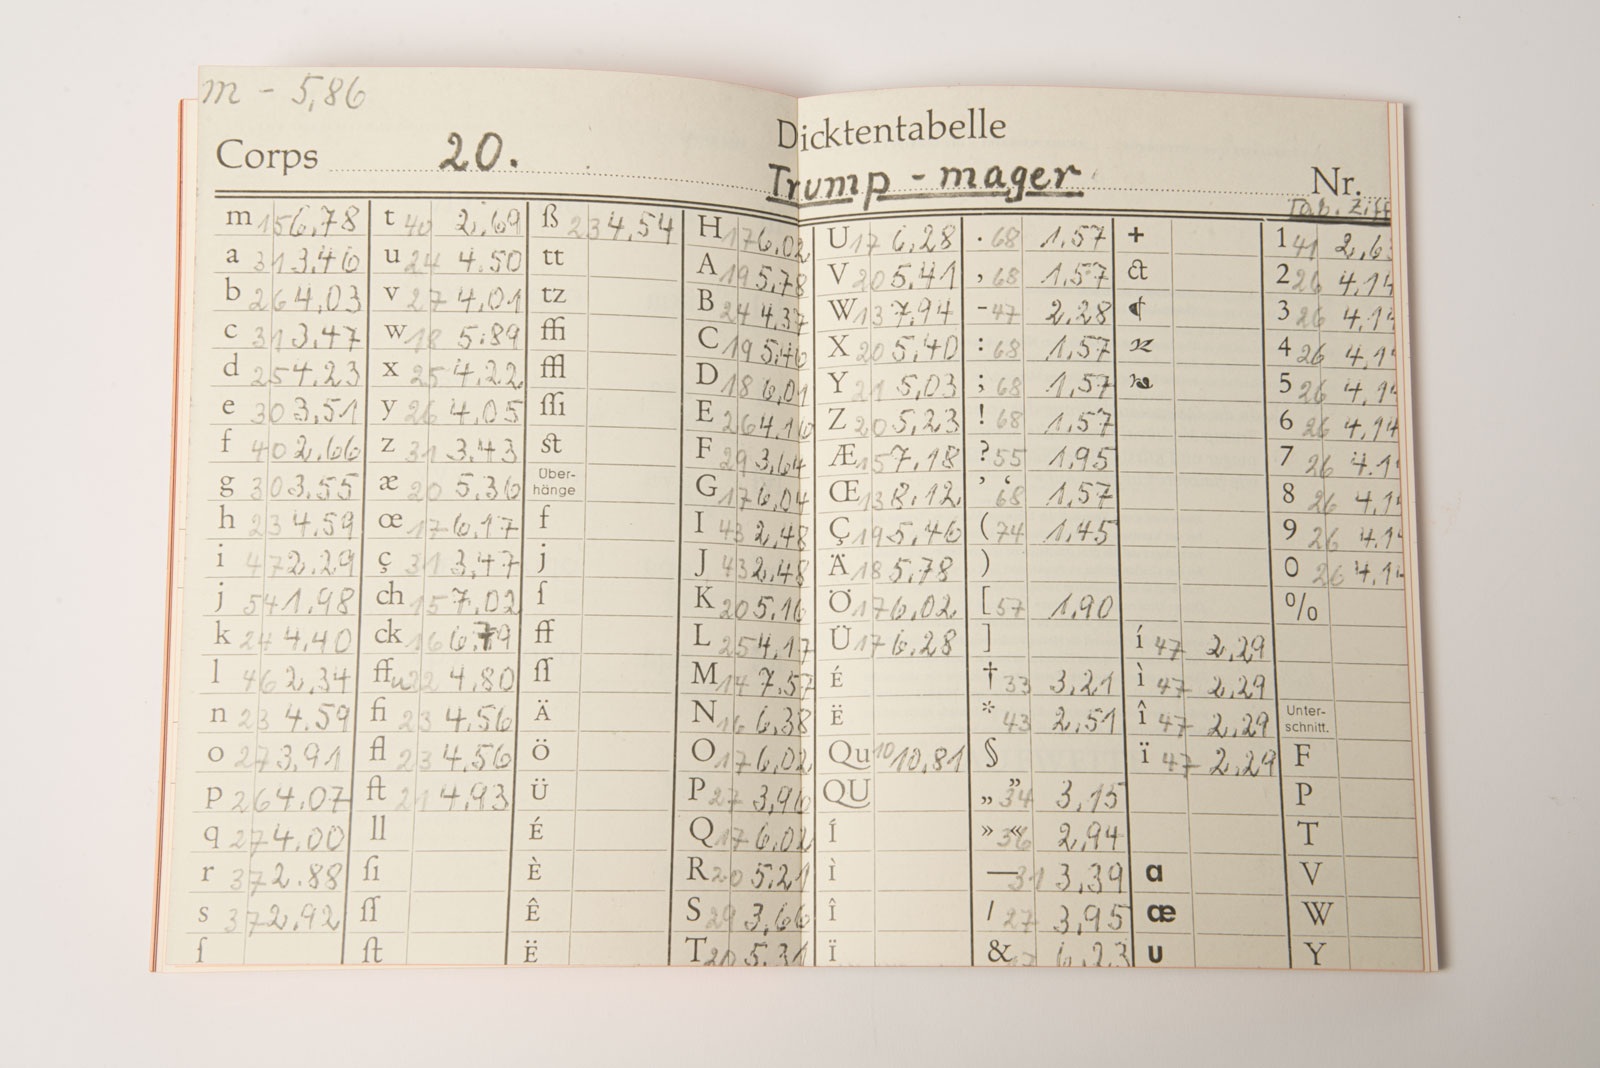 m - 5,86
Dicktentabelle
Corps 20. Trump - mager Nr.
Tab. Ziff
m 15 6,78 t 40 2,69 ß 23 4,54 H 17 6,02 U 17 6,28 . 68 1,57 + 1 41 2,6
a 31 3,46 u 24 4.50 tt A 19 5,78 V 20 5,41 , 68 1,57 & 2 26 4,14
b 26 4,03 v 27 4,01 tz B 24 4,37 W 13 7,94 - 47 2,28 3 26 4,14
c 31 3,47 w 18 5,89 ffi C 19 5,46 X 20 5,40 : 68 1,57 4 26 4,1
d 25 4,23 x 25 4,22 ffl D 18 6,01 Y 21 5,03 ; 68 1,57 5 26 4,14
e 30 3,51 y 26 4,05 ſſi E 26 4,16 Z 20 5,23 ! 68 1,57 6 26 4,14
f 40 2,66 z 31 3,43 ſt Über-hänge F 29 3,64 Æ 15 7,18 ? 55 1,95 7 26 4,1
g 30 3,55 æ 20 5,36 G 17 6,04 Œ 13 8,12 ’ ‘ 68 1,57 8 26 4,1
h 23 4,59 œ 17 6,17 f I 43 2,48 Ç 19 5,46 ( 74 1,45 9 26 4,1
i 47 2,29 ç 31 3,47 j J 43 2,48 Ä 18 5,78 ) 0 26 4,1
j 54 1,98 ch 15 7,02 ſ K 20 5,16 Ö 17 6,02 [ 57 1,90 %
k 24 4,40 ck 16 6,79 ff L 25 4,17 Ü 17 6,28 ] í 47 2,29
l 46 2,34 ff 22 4,80 ſſ M 14 7,57 É † 33 3,21 ì 47 2,29
n 23 4,59 fi 23 4,56 Ä N 16 6,38 Ë * 43 2,51 î 47 2,29 Unter-schnitt.
o 27 3,91 fl 23 4,56 Ö O 17 6,02 Qu 10 10,81 § ï 47 2,29 F
p 26 4,07 ft 21 4,93 Ü P 27 3,96 QU „ ” 34 3,15 P
q 27 4,00 ll É Q 17 6,02 Í » « 36 2,94 T
r 37 2,88 ſi È R 20 5,21 Ì — 31 3,39 a V
s 37 2,92 ſſ Ê S 29 3,66 Î / 27 3,95 æ W
ſ ſt Ë T 20 5,31 Ï & 17 6,23 u Y